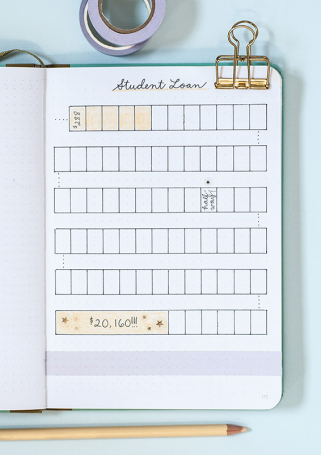 Student Loan
$288
half
way!
$20,160!!!